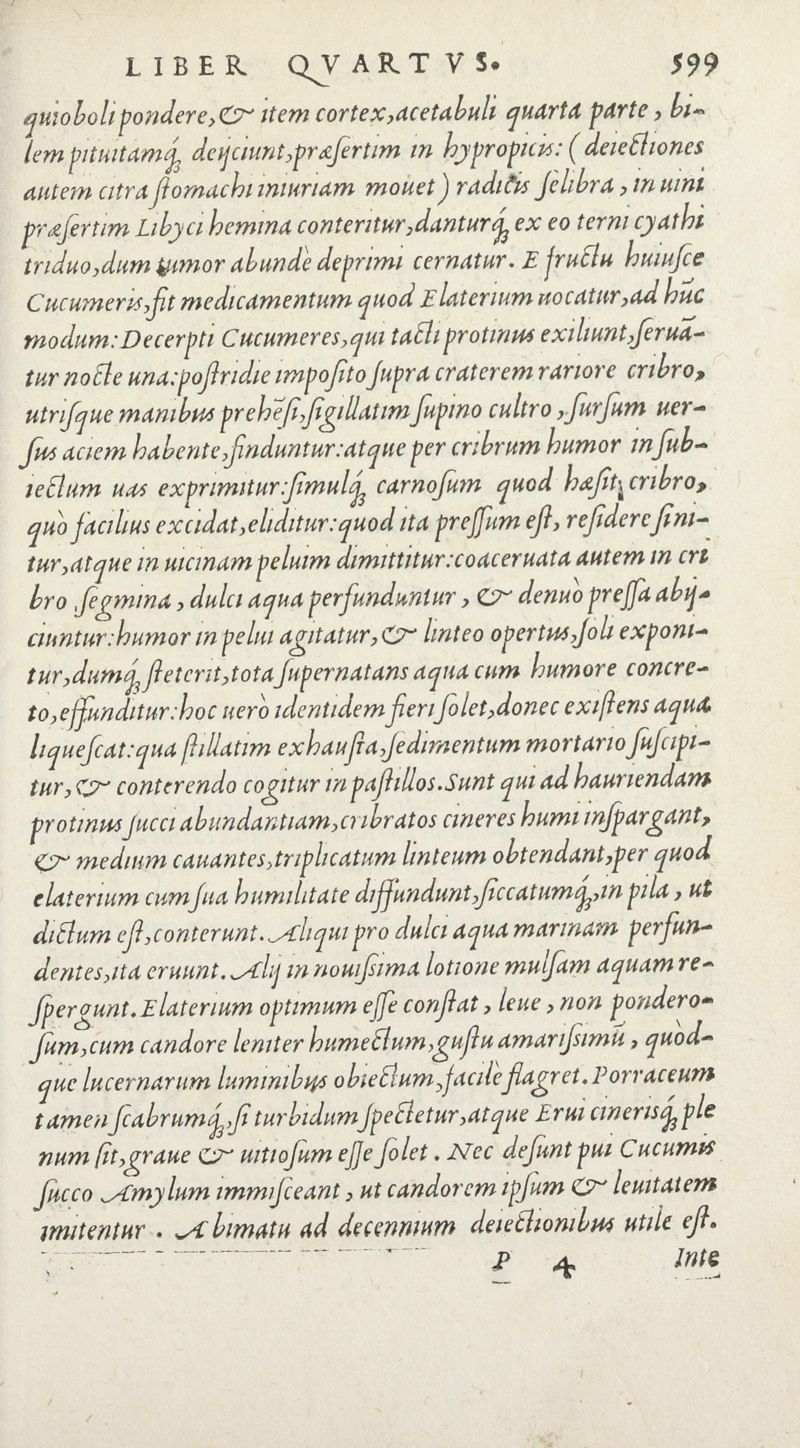 LIBER QVARTVS. 599
quioboli pondere, & item cortex, acetabuli quarta parte, bi-
lem pituitamq́; deijciunt, præsertim in hypropicis: (deiectiones
autem citra stomachi iniuriam mouet) radicis selibra, in uini
præsertim Libyci hemina conteritur, danturq́; ex eo terni cyathi
triduo, dum tumor abundè deprimi cernatur. E fructu huiusce
Cucumeris, fit medicamentum quod Elaterium uocatur, ad hūc
modum: Decerpti Cucumeres, qui tacti protinus exiliunt, seruā-
tur nocte una: postridie imposito supra craterem rariore cribro,
utrisque manibus prehēsi, sigillatim supino cultro, sursum uer-
sus aciem habente, finduntur: atque per cribrum humor in sub-
iectum uas exprimitur: simulq́; carnosum quod hæsit cribro,
quò facilius excidat, eliditur: quod ita pressum est, residere sini-
tur, atque in uicinam peluim dimittitur: coaceruata autem in cri
bro segmina, dulci aqua perfunduntur, & denuò pressa abij-
ciuntur: humor in pelui agitatur, & linteo opertus, soli exponi-
tur, dumq́; steterit, tota supernatans aqua cum humore concre-
to, effunditur: hoc uerò identidem fieri solet, donec existens aqua
liquescat: qua stillatim exhausta, sedimentum mortario suscipi-
tur, & conterendo cogitur in pastillos. Sunt qui ad hauriendam
protinus succi abundantiam, cribratos cineres humi inspargant,
& medium cauantes, triplicatum linteum obtendant, per quod
elaterium cum sua humilitate diffundunt, siccatumq́;, in pila, ut
dictum est, conterunt. Aliqui pro dulci aqua marinam perfun-
dentes, ita eruunt. Alij in nouissima lotione mulsam aquam re-
spergunt. Elaterium optimum esse constat, leue, non pondero-
sum, cum candore leniter humectum, gustu amarissimū, quòd-
que lucernarum luminibus obiectum, facilè flagret. Porraceum
tamen scabrumq́;, si turbidum spectetur, atque Erui cinerisq́; ple
num sit, graue & uitiosum esse solet. Nec desunt pui Cucumis
succo Amylum immisceant, ut candorem ipsum & leuitatem
imitentur. A bimatu ad decennium deiectionibus utile est.
P 4 Inte